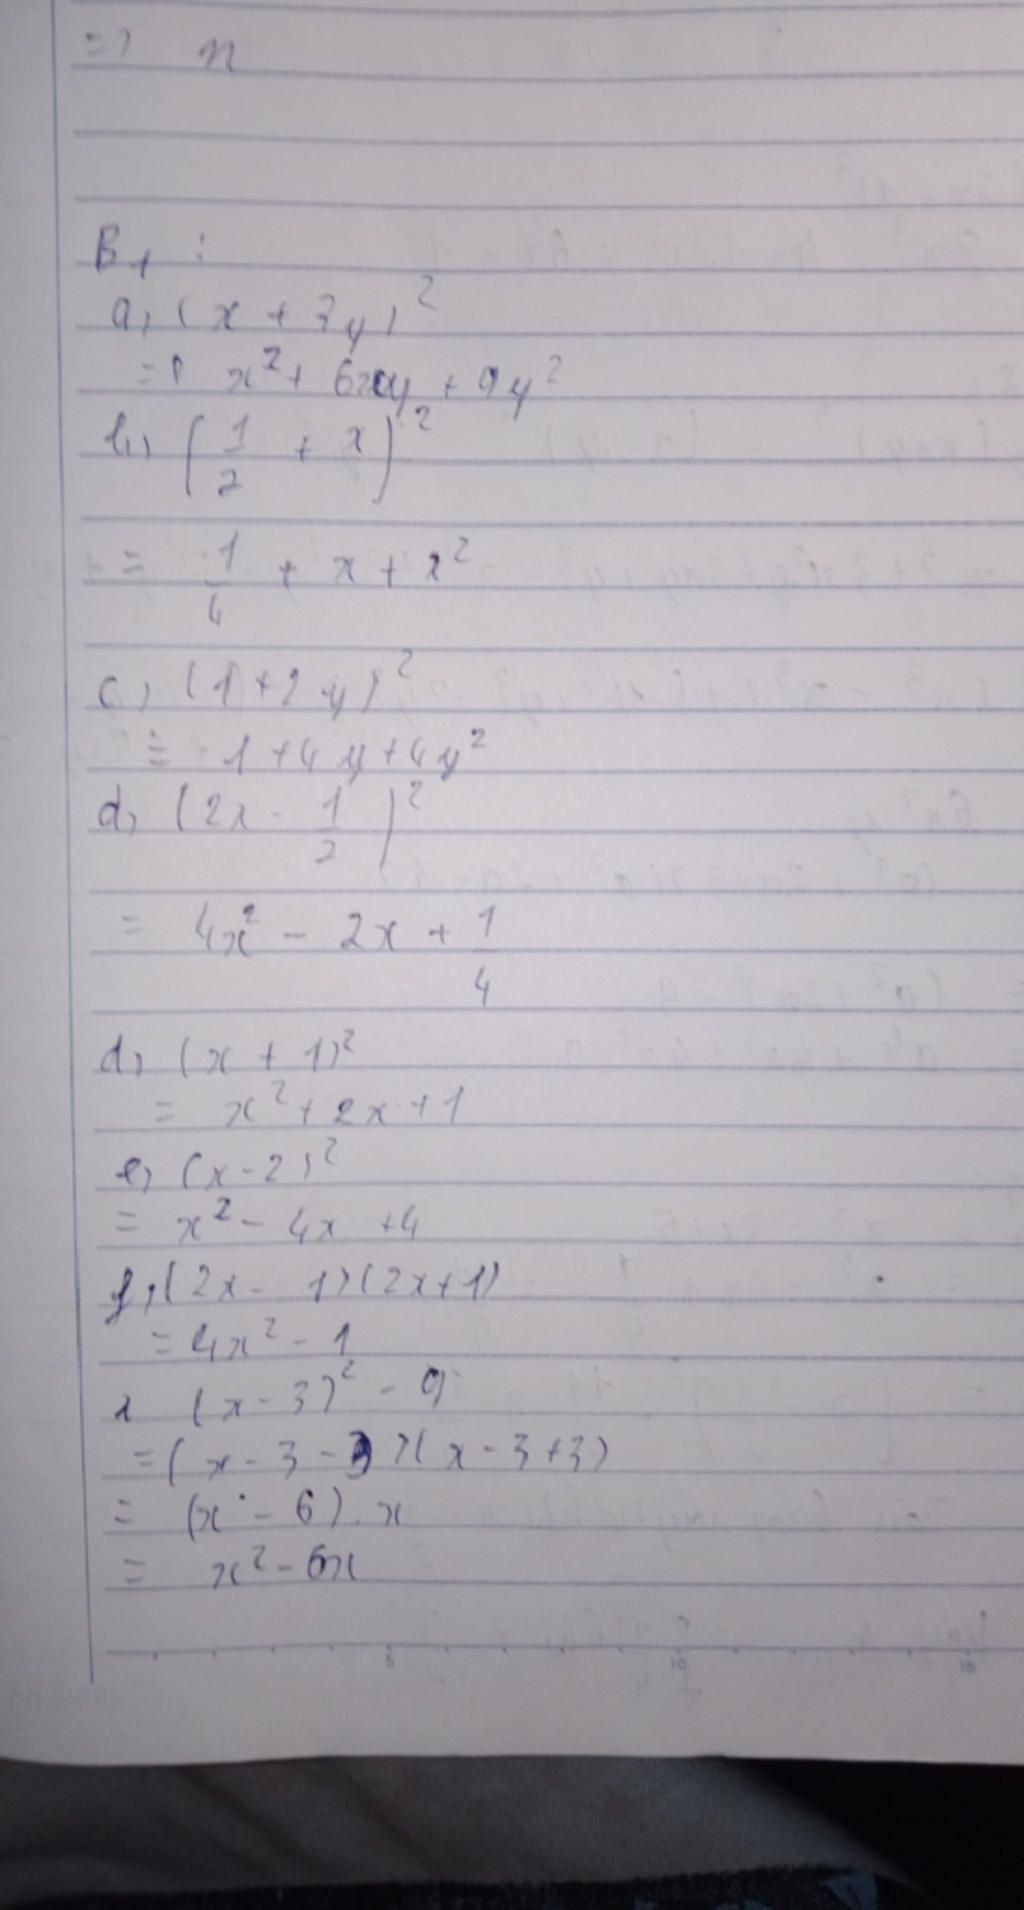 => n
B1 :
a, (x + 3y)²
= x² + 6xy + 9y²
b, (1/2 + x)²
= 1/4 + x + x²
c, (1 + 2y)²
= 1 + 4y + 4y²
d, (2x - 1/2)²
= 4x² - 2x + 1/4
d, (x + 1)²
= x² + 2x + 1
e, (x - 2)²
= x² - 4x + 4
f, (2x - 1)(2x + 1)
= 4x² - 1
(x - 3)² - 9
= (x - 3 - 3)(x - 3 + 3)
= (x - 6) . x
= x² - 6x
5 10 15